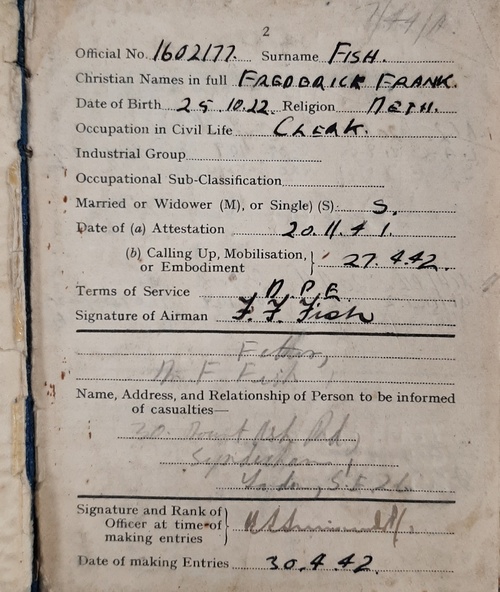 2
Official No. 1602177. Surname FISH.
Christian Names in full FREDERICK FRANK.
Date of Birth 25.10.22. Religion METH.
Occupation in Civil Life CLERK.
Industrial Group
Occupational Sub-Classification
Married or Widower (M), or Single) (S): S.
Date of (a) Attestation 20.11.41.
(b) Calling Up, Mobilisation, or Embodiment } 27.4.42.
Terms of Service D.P.E
Signature of Airman F. F. Fish
Father,
F Fish
Name, Address, and Relationship of Person to be informed
of casualties—
30. Rd,
Sydenham,
S.E.26
Signature and Rank of
Officer at time of
making entries
Date of making Entries 30.4.42.